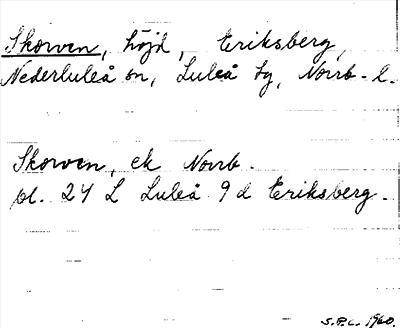 Skorven, höjd, Eriksberg,
Nederluleå sn, Luleå tg, Norrb-l.
Skorven, ek Norrb.
pl. 24 L Luleå 9 d Eriksberg.
S.P.L. 1960.